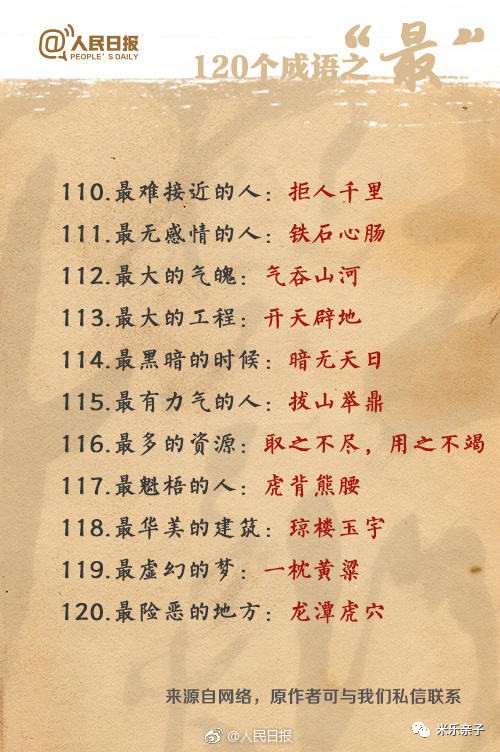 @人民日报
PEOPLE'S DAILY
120个成语之“最”
110.最难接近的人：拒人千里
111.最无感情的人：铁石心肠
112.最大的气魄：气吞山河
113.最大的工程：开天辟地
114.最黑暗的时候：暗无天日
115.最有力气的人：拔山举鼎
116.最多的资源：取之不尽，用之不竭
117.最魁梧的人：虎背熊腰
118.最华美的建筑：琼楼玉宇
119.最虚幻的梦：一枕黄粱
120.最险恶的地方：龙潭虎穴
来源自网络，原作者可与我们私信联系
@人民日报
米乐亲子